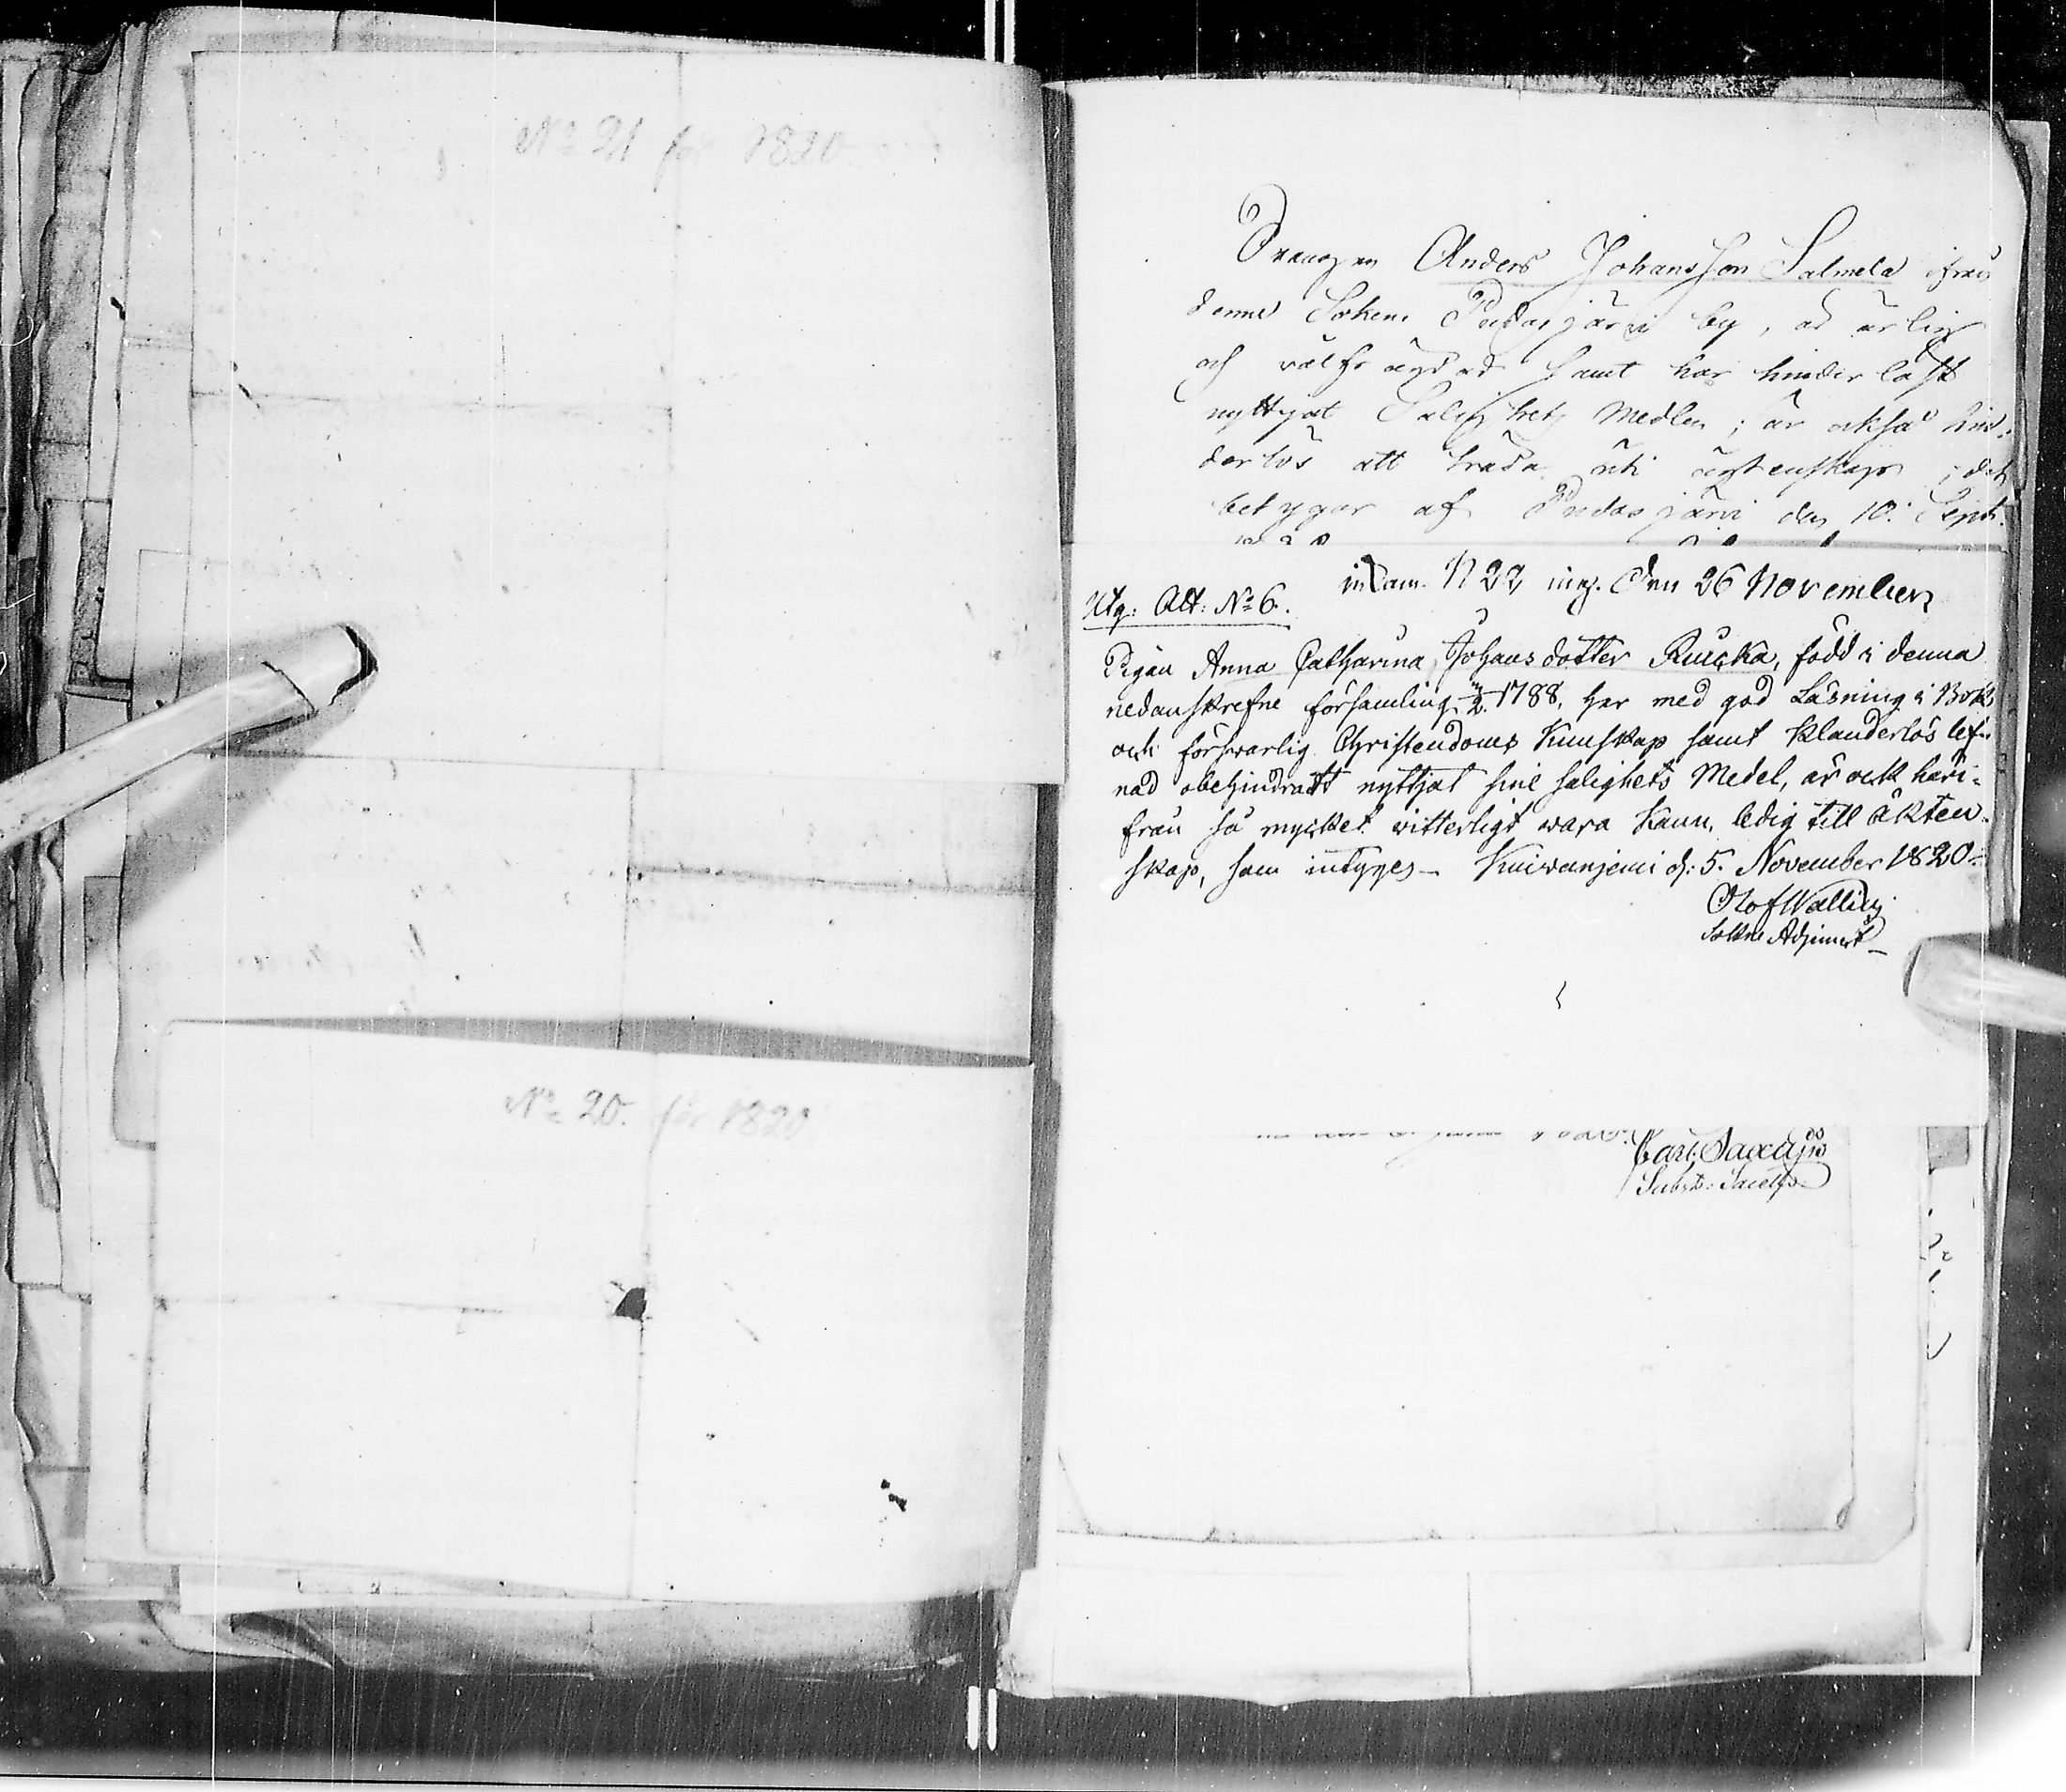 No 21 för 1820
No 20. för 1820
Drängen Anders Johansson Salmela ifrån
denne Sokens Pudasjärvi by, är ärlig
och välfrägdad samt har hinderlöst
nyttjat Salighets Medlen; är också hin-
derlös att träda uti ägtenskap; det
betygar af Pudasjärvi den 10. Sept.
inkom. N 22 ing. den 26 November
Utg: Att: No 6.
Pigan Anna Catharina Johansdotter Ruska, född i denna
nedanskrefne församling 2. 1788, har med god Läsning i Bok
och förswarlig Christendoms Kunskap samt Klanderlös lef-
nad obehindradt nyttjat sine salighets Medel, är ock häri-
från så mycket witterligt wara kann, ledig till äkten-
skap, som intyges – Kuiwaniemi d: 5. November 1820.
Olof Walling
Sokne Adjunct
Carl
Subst: Sacell